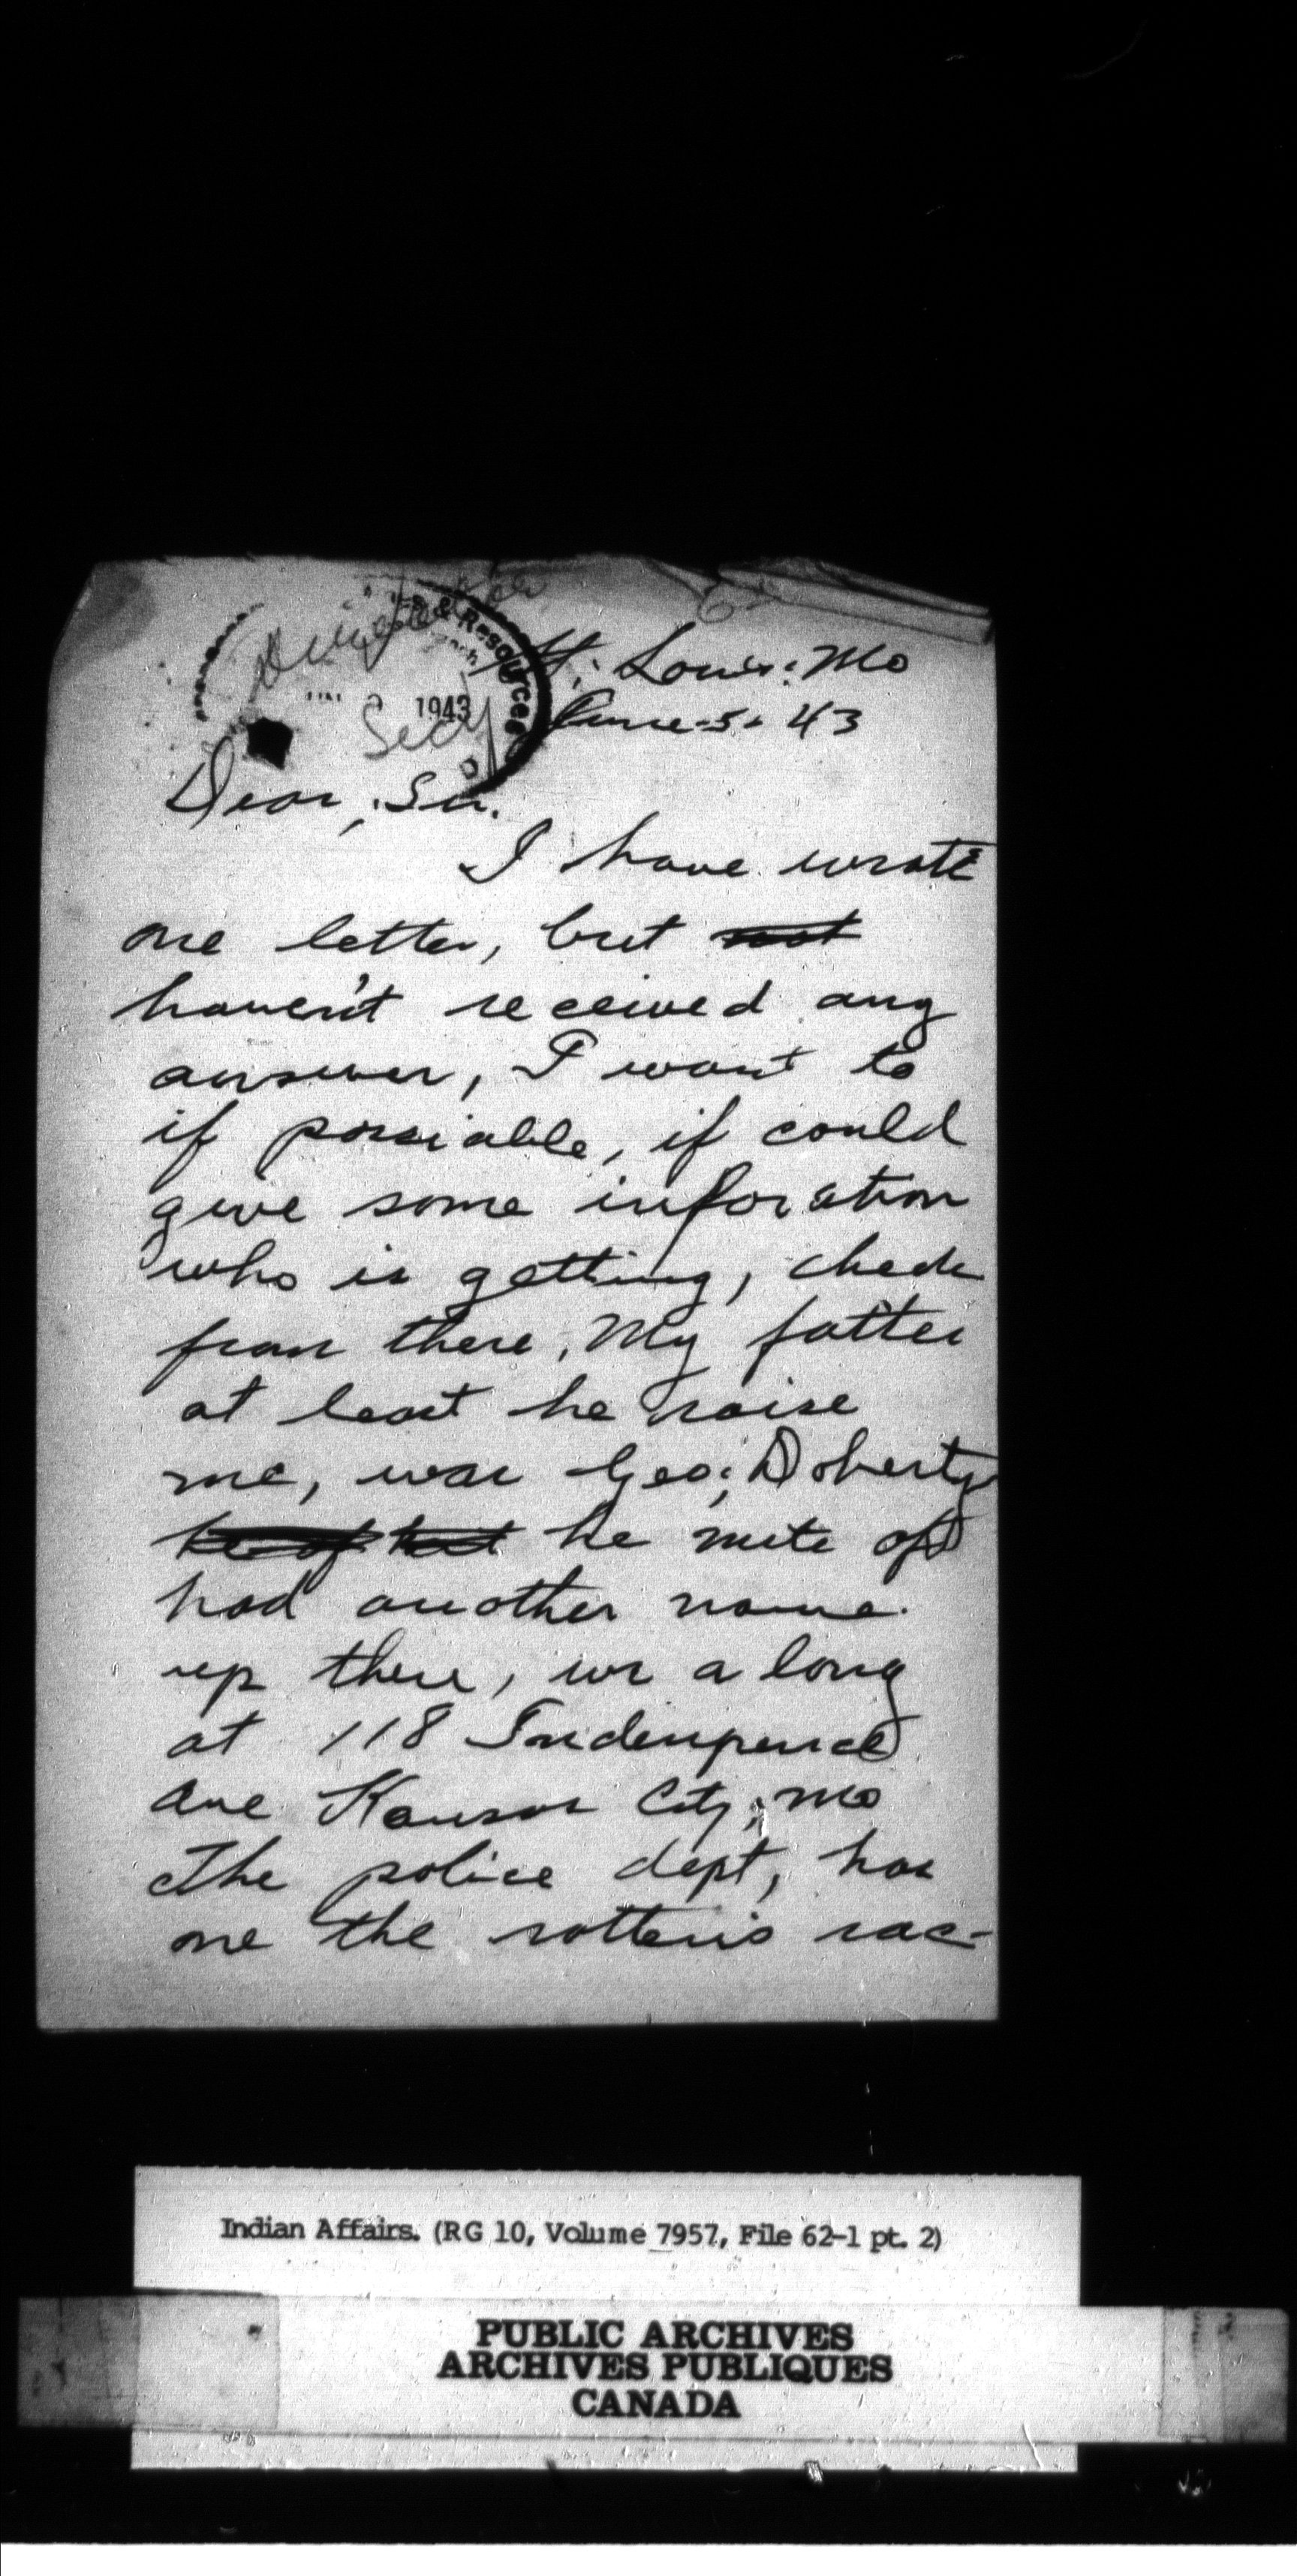 & Resources
1943
Secy
St. Louis: Mo
June-5-43
Dear, Sir.
I have wrote
one letter, but not
haven't received any
answer, I want to
if possiable, if could
give some inforation
who is getting, check
from there, My father
at least he raise
me, was Geo; Doherty
he mite of
had another name.
up there, we a long
at 118 Indenpence
Ave Kansas City, Mo
The police dept, has
one the rottenis rac-
Indian Affairs. (RG 10, Volume 7957, File 62-1 pt. 2)
PUBLIC ARCHIVES
ARCHIVES PUBLIQUES
CANADA